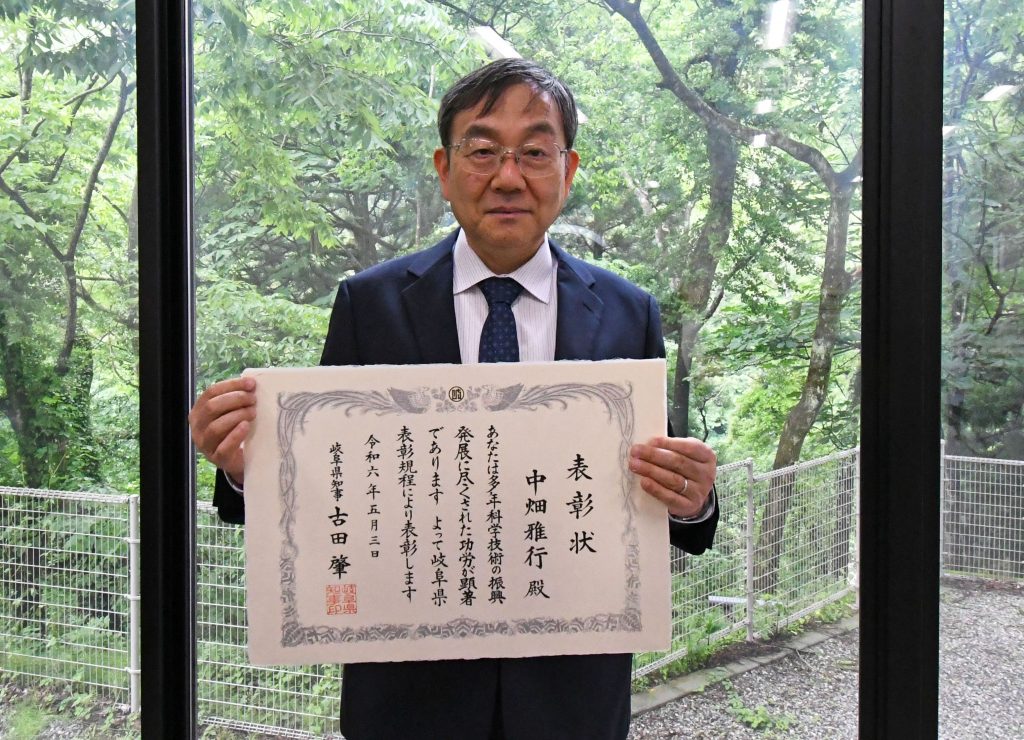 表彰状
中畑雅行 殿
あなたは多年科学技術の振興
発展に尽くされた功労が顕著
であります よって岐阜県
表彰規程により表彰します
令和六年五月三日
岐阜県知事 古田 肇
岐阜県知事印